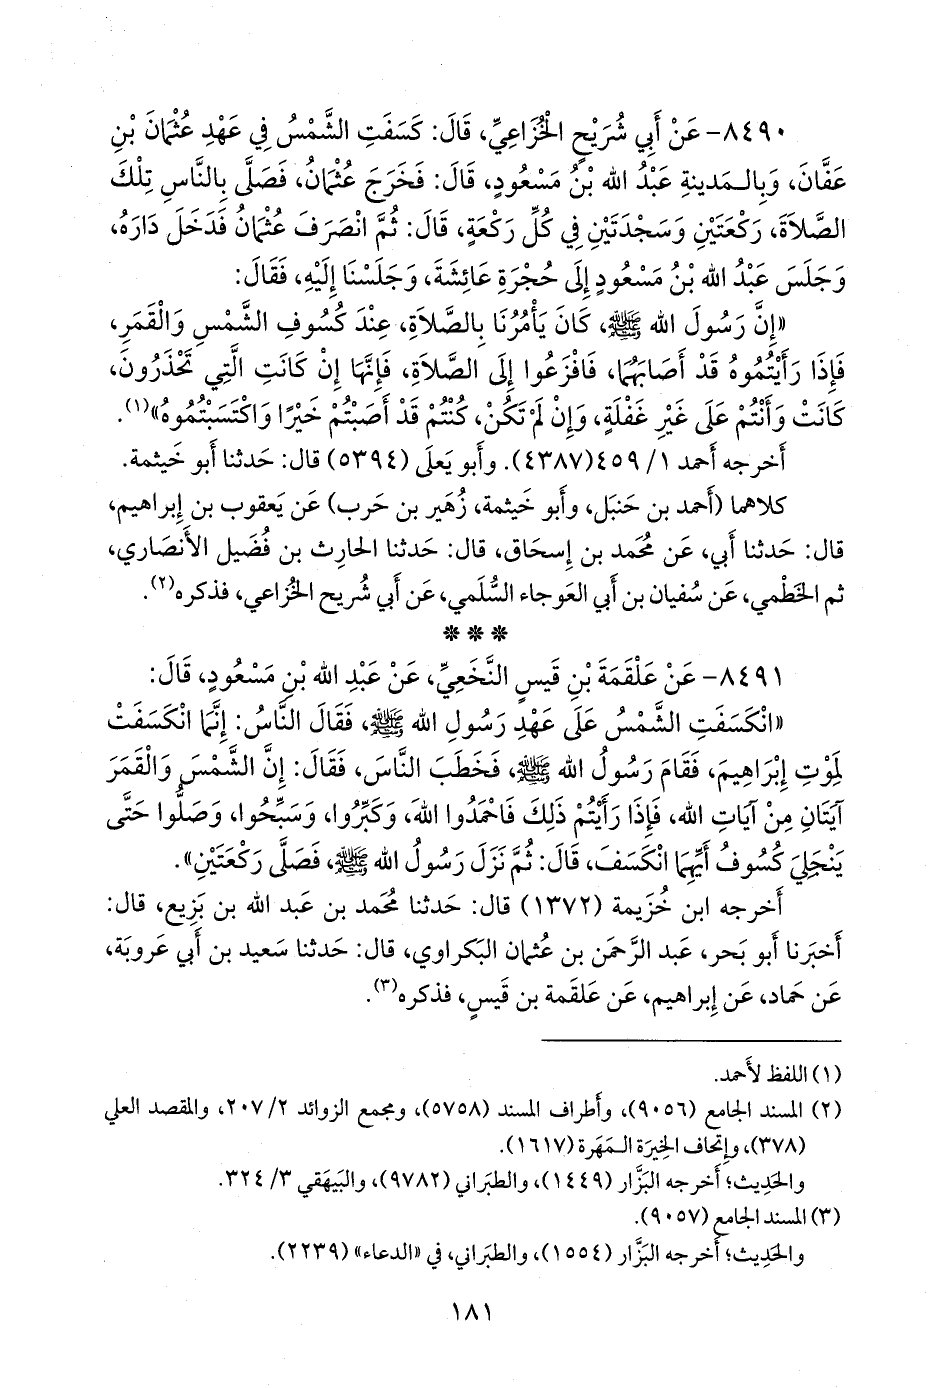 ٨٤٩٠- عَنْ أَبِي شُرَيْحٍ الْخُزَاعِيِّ، قَالَ: كَسَفَتِ الشَّمْسُ فِي عَهْدِ عُثْمَانَ بْنِ
عَفَّانَ، وَبِالـمَدينةِ عَبْدُ الله بْنُ مَسْعُودٍ، قَالَ: فَخَرَجَ عُثْمَانُ، فَصَلَّى بِالنَّاسِ تِلْكَ
الصَّلاَةَ، رَكْعَتَيْنِ وَسَجْدَتَيْنِ فِي كُلِّ رَكْعَةٍ، قَالَ: ثُمَّ انْصَرَفَ عُثْمَانُ فَدَخَلَ دَارَهُ،
وَجَلَسَ عَبْدُ الله بْنُ مَسْعُودٍ إِلَى حُجْرَةِ عَائِشَةَ، وَجَلَسْنَا إِلَيْهِ، فَقَالَ:
«إِنَّ رَسُولَ الله ﷺ، كَانَ يَأْمُرُنَا بِالصَّلاَةِ، عِنْدَ كُسُوفِ الشَّمْسِ وَالْقَمَرِ،
فَإِذَا رَأَيْتُمُوهُ قَدْ أَصَابَهُمَا، فَافْزَعُوا إِلَى الصَّلاَةِ، فَإِنَّهَا إِنْ كَانَتِ الَّتِي تَحْذَرُونَ،
كَانَتْ وَأَنْتُمْ عَلَى غَيْرِ غَفْلَةٍ، وَإِنْ لَمْ تَكُنْ، كُنْتُمْ قَدْ أَصَبْتُمْ خَيْرًا وَاكْتَسَبْتُمُوهُ»(١).
أَخرجه أَحمد ١/ ٤٥٩(٤٣٨٧). وأَبو يَعلَى (٥٣٩٤) قال: حَدثنا أَبو خَيثمة.
كلاهما (أَحمد بن حَنبَل، وأَبو خَيثمة، زُهَير بن حَرب) عَن يَعقوب بن إِبراهيم،
قال: حَدثنا أَبي، عَن مُحمد بن إِسحَاق، قال: حَدثنا الحارِث بن فُضَيل الأَنصَاري،
ثم الخَطْمي، عَن سُفيان بن أَبي العَوجاء السُّلَمي، عَن أَبي شُريح الخُزاعي، فذكره(٢).
***
٨٤٩١- عَنْ عَلْقَمَةَ بْنِ قَيسٍ النَّخَعِيِّ، عَنْ عَبْدِ الله بْنِ مَسْعُودٍ، قَالَ:
«انْكَسَفَتِ الشَّمْسُ عَلَى عَهْدِ رَسُولِ الله ﷺ، فَقَالَ النَّاسُ: إِنَّمَا انْكَسَفَتْ
لِمَوْتِ إِبْرَاهِيمَ، فَقَامَ رَسُولُ الله ﷺ، فَخَطَبَ النَّاسَ، فَقَالَ: إِنَّ الشَّمْسَ وَالْقَمَرَ
آيَتَانِ مِنْ آيَاتِ الله، فَإِذَا رَأَيْتُمْ ذَلِكَ فَاحْمَدُوا اللهَ، وَكَبِّرُوا، وَسَبِّحُوا، وَصَلُّوا حَتَّى
يَنْجَلِيَ كُسُوفُ أَيِّهِمَا انْكَسَفَ، قَالَ: ثُمَّ نَزَلَ رَسُولُ الله ﷺ، فَصَلَّى رَكْعَتَيْنِ».
أَخرجه ابن خُزيمة (١٣٧٢) قال: حَدثنا مُحمد بن عَبد الله بن بَزيع، قال:
أَخبَرنا أَبو بَحر، عَبد الرَّحمَن بن عُثمان البَكراوي، قال: حَدثنا سَعيد بن أَبي عَروبَة،
عَن حَماد، عَن إِبراهيم، عَن عَلقمة بن قَيسٍ، فذكره(٣).
(١) اللفظ لأَحمد.
(٢) المسند الجامع (٩٠٥٦)، وأَطراف المسند (٥٧٥٨)، ومجمع الزوائد ٢/ ٢٠٧، والمقصد العلي
(٣٧٨)، وإِتحاف الخِيرَة الـمَهَرة (١٦١٧).
والحَدِيث؛ أَخرجه البَزَّار (١٤٤٩)، والطبَراني (٩٧٨٢)، والبَيهَقي ٣/ ٣٢٤.
(٣) المسند الجامع (٩٠٥٧).
والحَدِيث؛ أَخرجه البَزَّار (١٥٥٤)، والطبَراني، في «الدعاء» (٢٢٣٩).
١٨١